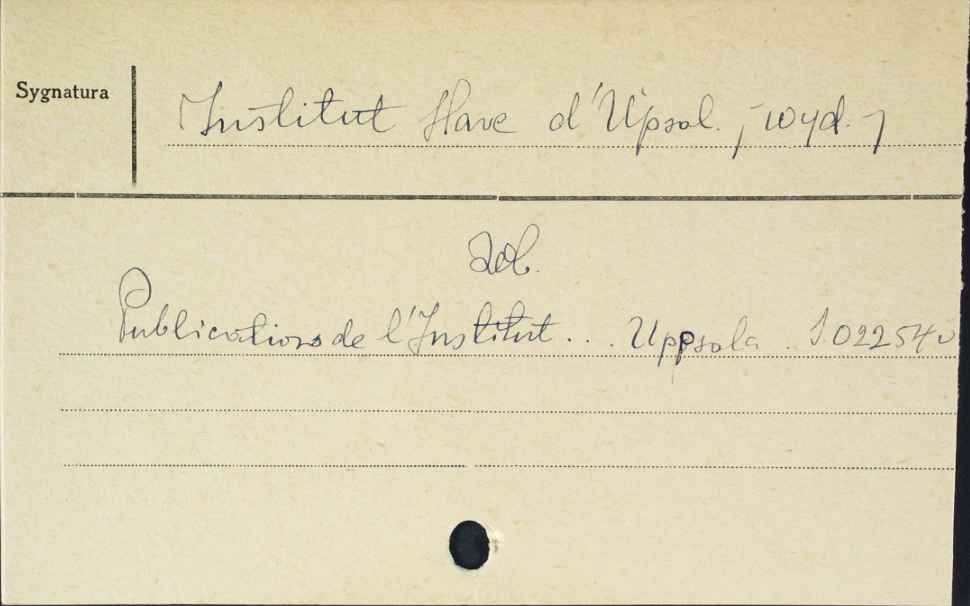 Sygnatura
Institut Slave d'Upsal. [wyd.]
zob.
Publications de l'Institut... Uppsala. S.02254